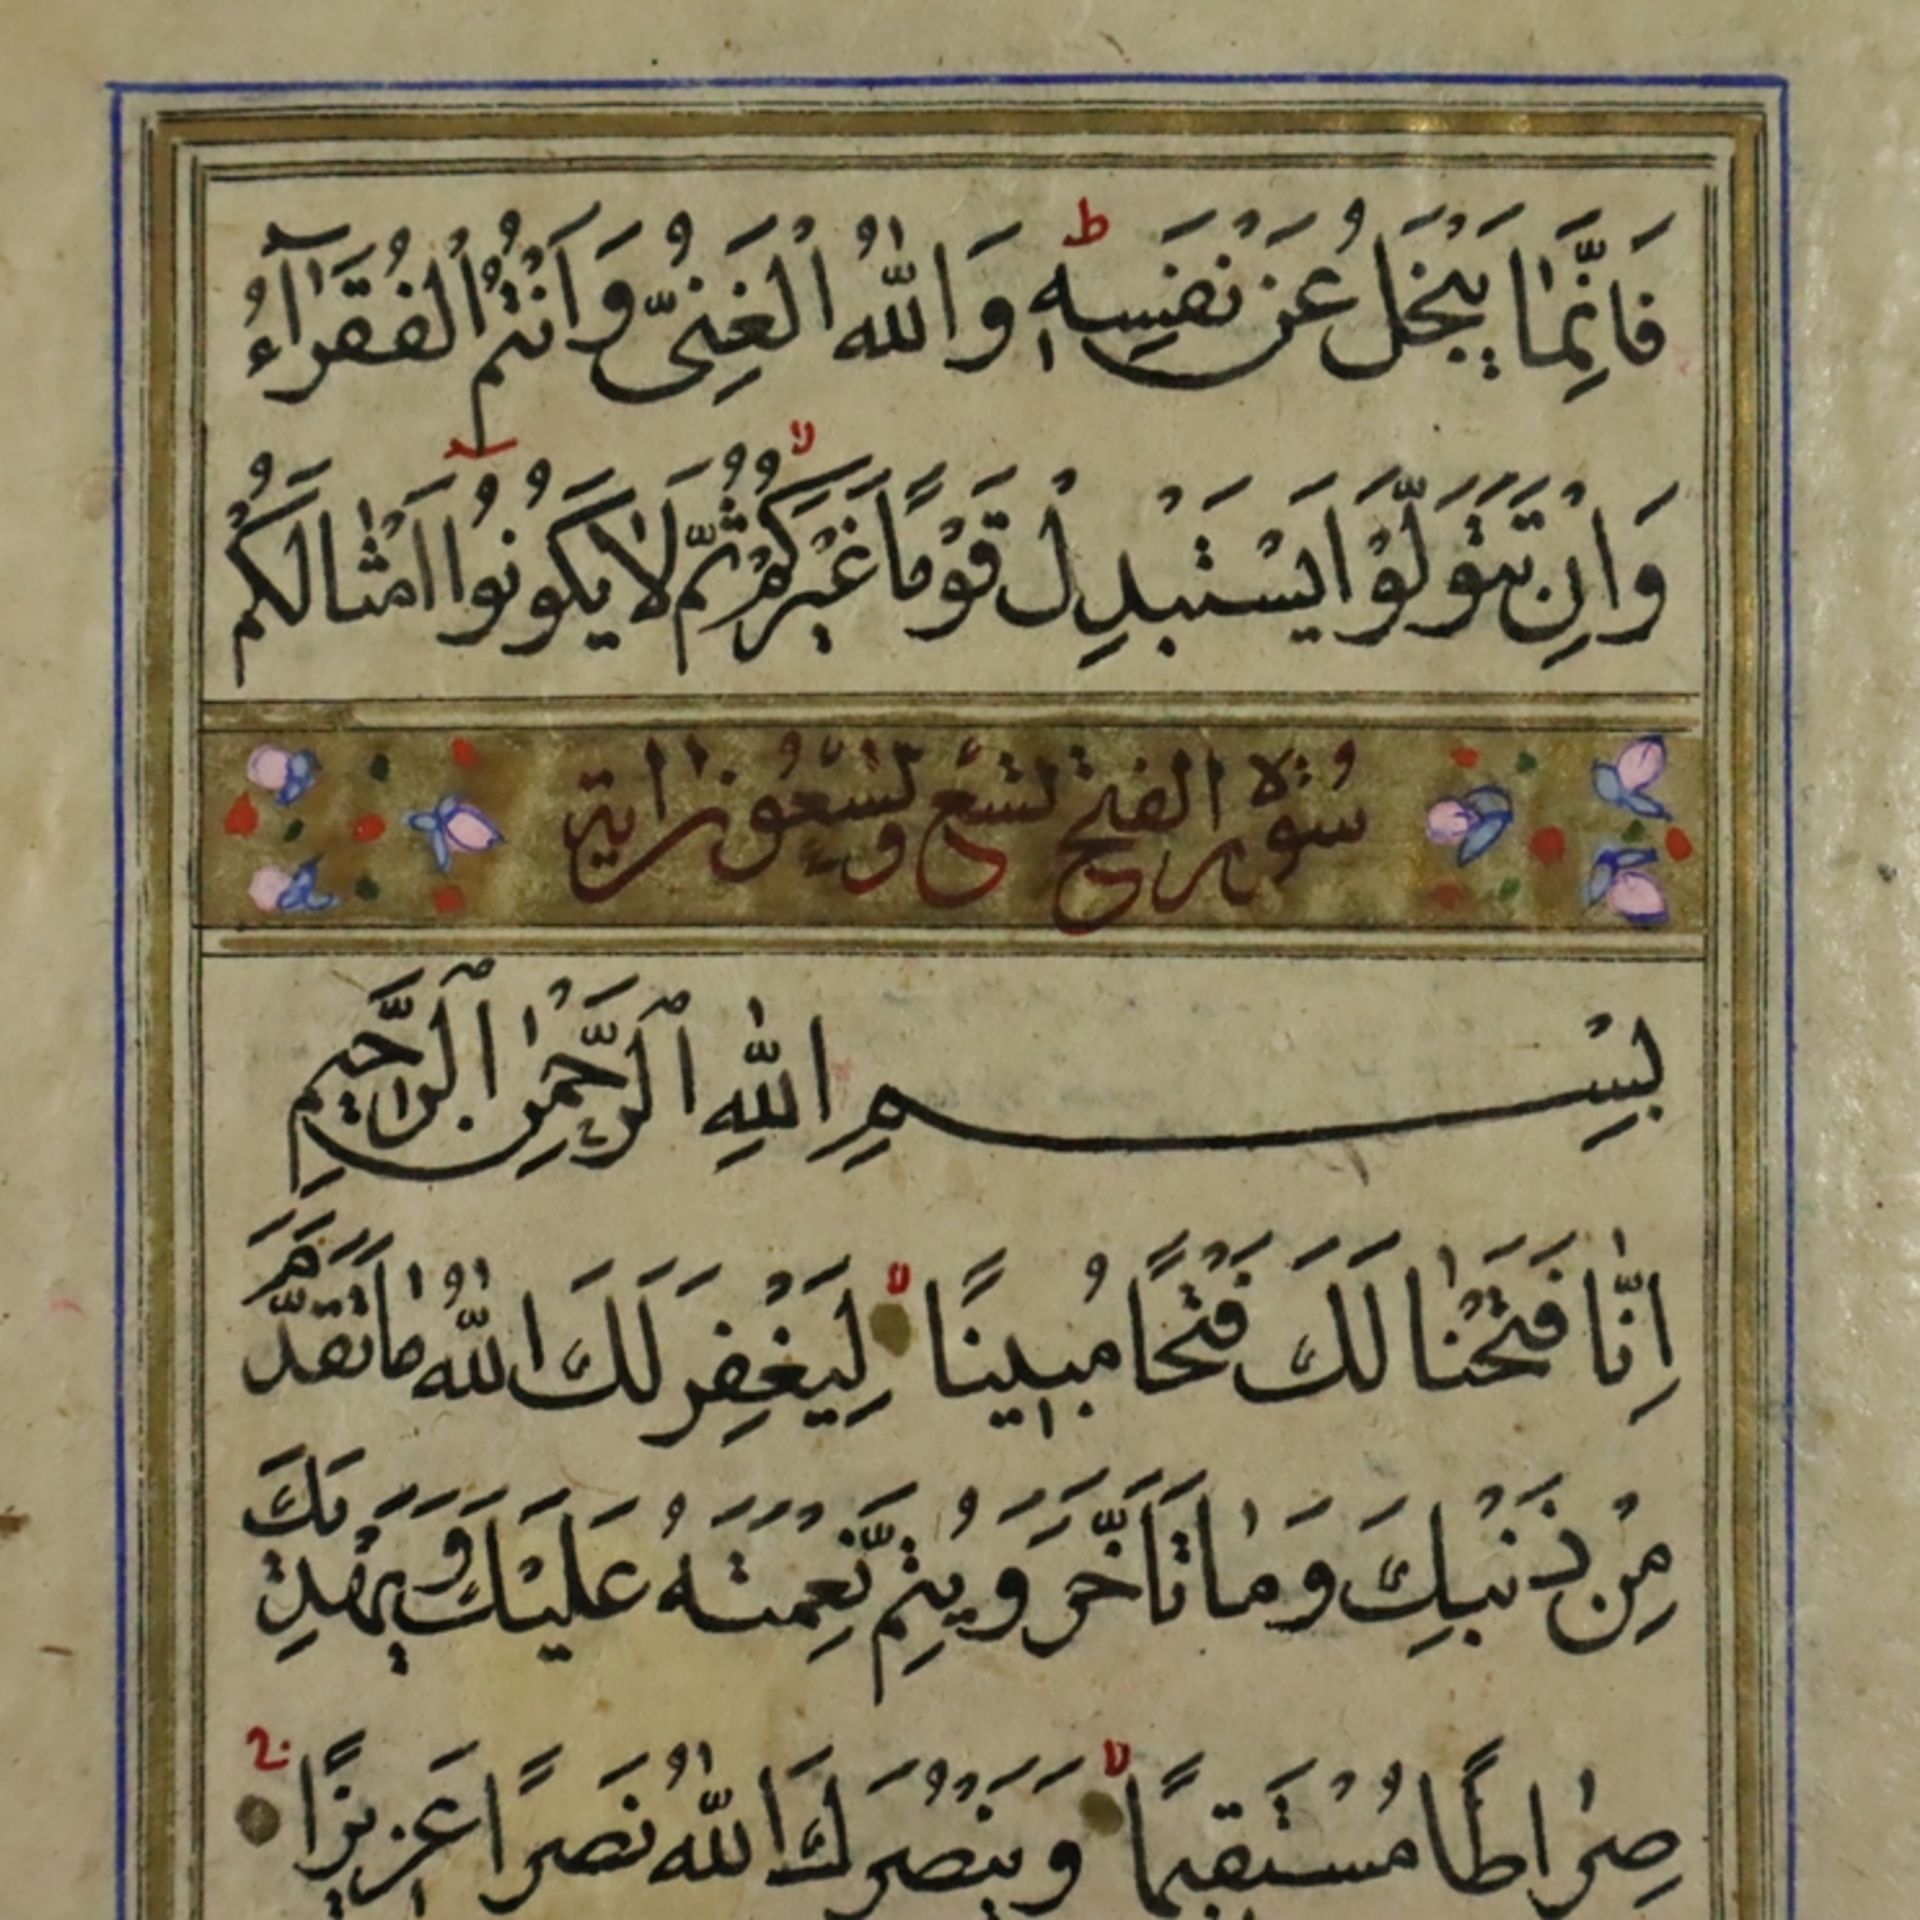 فَاِنَّمٰا يَبْخَلُ عَنْ نَفْسِهٖ ط وَاللّٰهُ الْغَنِيُّ وَاَنْتُمُ الْفُقَرٰآءُ
وَاِنْ تَتَوَلَّوْا يَسْتَبْدِلْ قَوْمًا غَيْرَكُمْ لا ثُمَّ لٰا يَكُونُوا اَمْثٰالَكُمْ
سُورَةُ الفتح تسع وَعِشرون اٰية
بِسْمِ اللّٰهِ ٱلرَّحْمٰنِ ٱلرَّحِيمِ
اِنّٰا فَتَحْنٰا لَكَ فَتْحًا مُبِينًا لا لِيَغْفِرَ لَكَ اللّٰهُ مٰا تَقَدَّمَ
مِنْ ذَنْبِكَ وَمٰا تَاَخَّرَ وَيُتِمَّ نِعْمَتَهُ عَلَيْكَ وَيَهْدِيَكَ
صِرٰاطًا مُسْتَقِيمًا لا وَيَنْصُرَكَ اللّٰهُ نَصْرًا عَزِيزًا